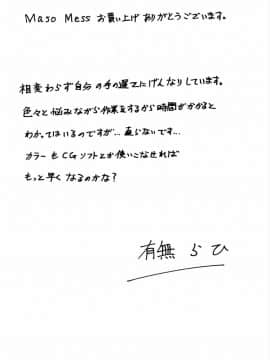 Maso Mess お買い上げ ありがとうございます。
相変わらず自分の手の遅さにげんなりしています。
色々と悩みながら作業をするから時間がかかると
わかってはいるのですが…直らないです…
カラーもCGソフトとか使いこなせれば
もっと早くなるのかな?
有無らひ